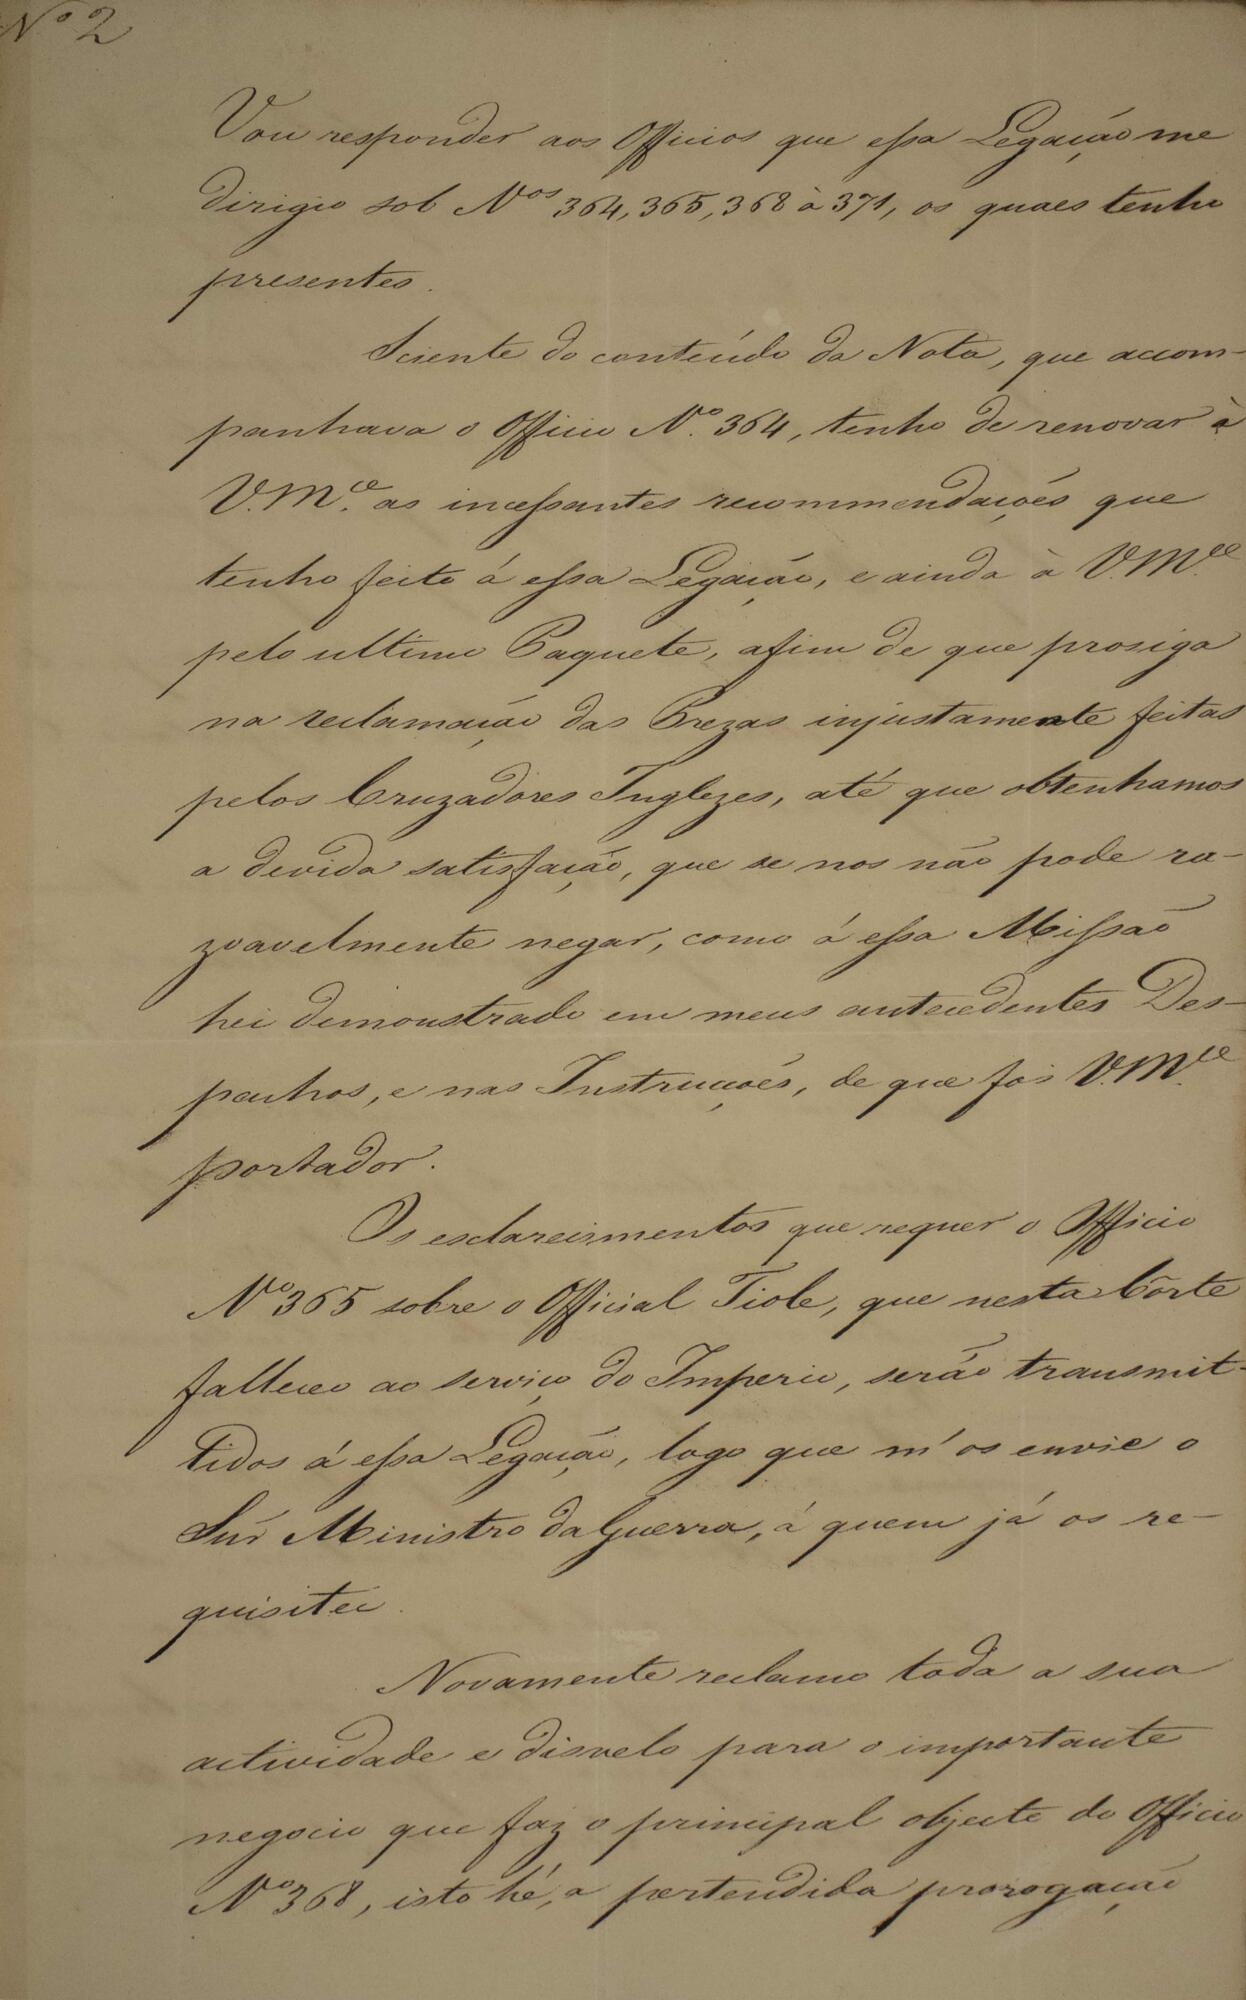 Nº 2
Vou responder aos Officios que essa Legação me
dirigio sob Nos 364, 365, 368 à 371, os quaes tenho
presentes.
Sciente do conteúdo da Nota, que accom-
panhava o Officio Nº. 364, tenho de renovar à
V.Mce. as incessantes recommendações que
tenho feito á essa Legação, e ainda à V.Mce.
pelo ultimo Paquete, afim de que prosiga
na reclamação das Prezas injustamente feitas
pelos Cruzadores Inglezes, até que obtenhamos
a devida satisfação, que se nos não pode ra-
zoavelmente negar, como á essa Missão
hei demonstrado em meus antecedentes Des-
pachos, e nas Instrucções, de que foi V.Mce.
portador.
Os esclarecimentos que requer o Officio
Nº 365 sobre o Official Tiole, que nesta Côrte
falleceo ao serviço do Imperio, serão transmit-
tidos á essa Legação, logo que m'os envie o
Snr Ministro da Guerra, á quem já os re-
quisitei.
Novamente reclamo toda a sua
actividade e disvelo para o importante
negocio que faz o principal objecto do Officio
Nº 368, isto hé, a pertendida prorogação